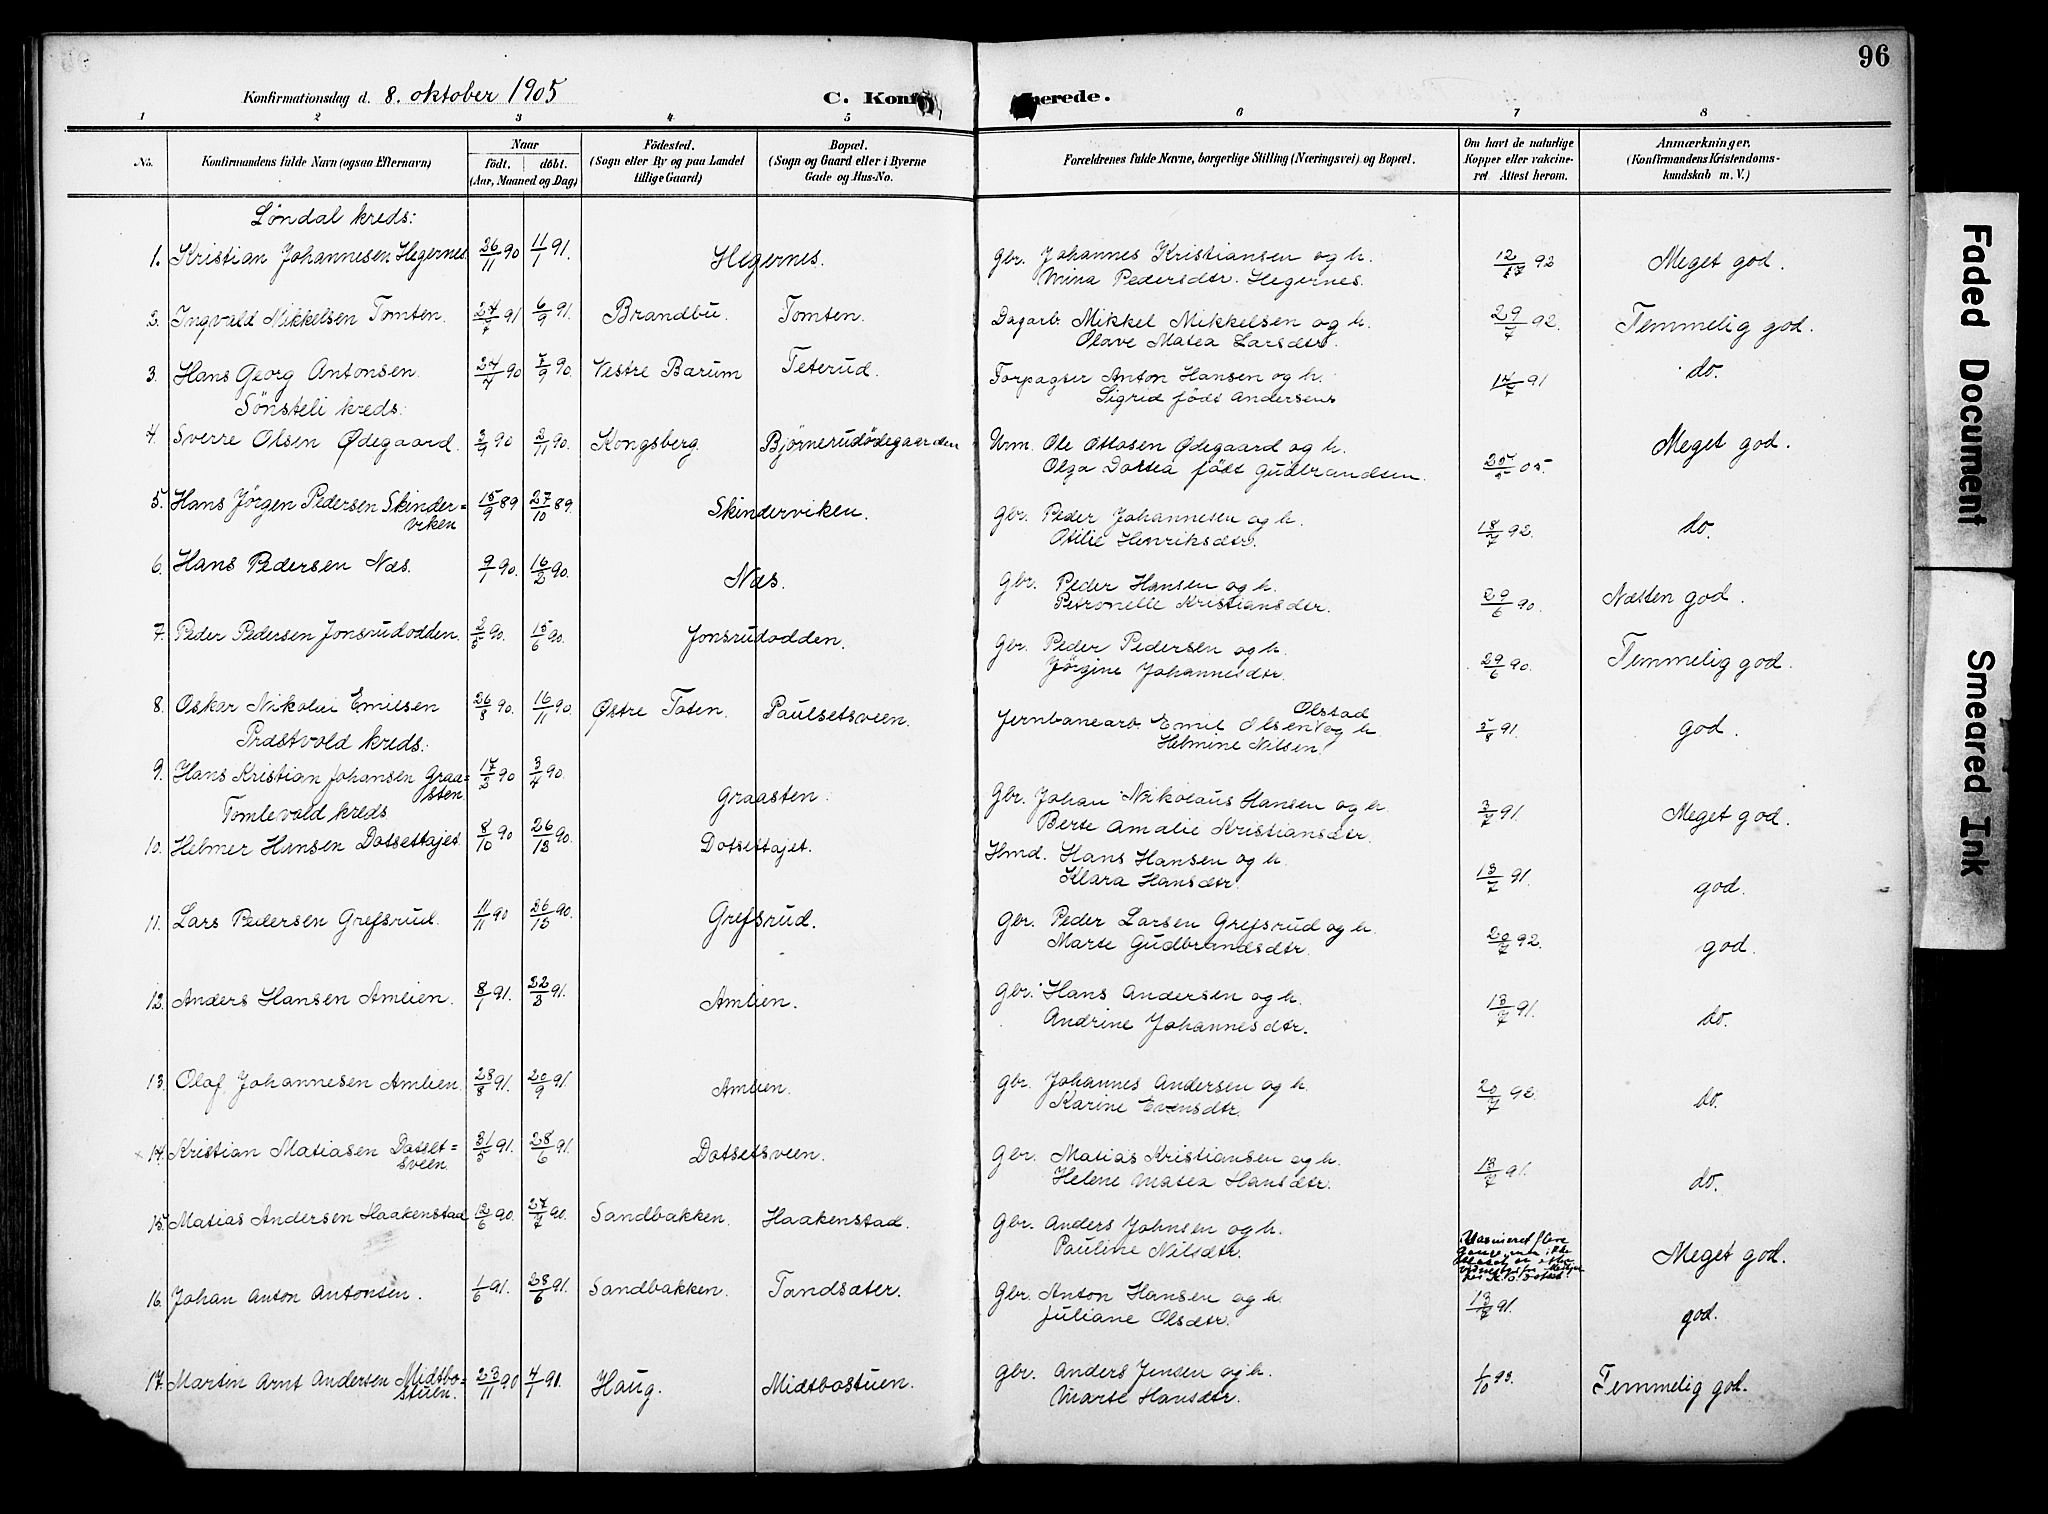 96
Konfirmationsdag d. 8. oktober 1905
C. Konf merede.
1 2 3 4 5 6 7 8
No.
Konfirmandens fulde Navn (ogsaa Efternavn)
Naar
født. døbt.
(Aar, Maaned og Dag)
Fødested.
(Sogn eller By og paa Landet
tillige Gaard)
Bopæl.
(Sogn og Gaard eller i Byerne
Gade og Hus-No.
Forældrenes fulde Navne, borgerlige Stilling (Næringsvei) og Bopæl.
Om havt de naturlige
Kopper eller vakcine-
ret Attest herom.
Anmærkninger,
(Konfirmandens Kristendoms-
kundskab m. V.)
Løndal kreds:
1. Kristian Johannesen Hegernes 26/11 90 11/1 91. Hegernes. Gbr. Johannes Kristiansen og h. 12/17 92 Meget god.
Mina Pedersdtr. Hegernes.
2. Ingvald Mikkelsen Tomten. 24/7 91 6/9 91. Brandbu. Tomten. Dagarb. Mikkel Mikkelsen og h. 29/7 92. Temmelig god.
Olave Matea Larsdtr.
3. Hans Georg Antonsen. 24/7 90 7/9 90. Vestre Bærum Teterud. Forpagter Anton Hansen og h. 14/7 91 do.
Sigrid født Andersens
Sønsteli kreds:
4. Sverre Olsen Ødegaard. 3/9 90 2/11 90. Kongsberg. Bjørnerudødegaarden Urm. Ole Ottosen Ødegaard og h. 25/5 05. Meget god.
Olga Dortea født Gudbrandsen.
5. Hans Jørgen Pedersen Skinder=
viken 15/9 89 27/10 89. Skinderviken. Gbr. Peder Johannesen og h. 18/7 92. do.
Otilie Henriksdtr.
6. Hans Pedersen Næs. 9/1 90. 16/2 90. Næs. Gbr. Peder Hansen og h. 29/6 90. Næsten god.
Petronelle Kristiansdtr.
7. Peder Pedersen Jonsrudodden. 2/5 90. 15/6 90. Jonsrudodden. Gbr. Peder Pedersen og h. 29/6 90. Temmelig god.
Jørgine Johannesdtr.
8. Oskar Nikolai Emilsen 26/8 90. 16/11 90. Østre Toten. Paulsetsveen. Jernbanearb. Emil Olsen Olstad og h 5/8 91. god.
Helmine Nilsen.
Præstvold kreds:
9. Hans Kristian Johansen Graa=
sten. 17/2 90 3/4 90. Graasten. Gbr. Johan Nikolaus Hansen og h. 3/7 91. Meget god.
Berte Amalie Kristiansdtr.
Tomlevold kreds
10. Helmer Hansen Dotsettajet 8/10 90 26/12 90. Dotsettajet. Hmd. Hans Hansen og h. 13/7 91. god.
Klara Hansdtr.
11. Lars Pedersen Grefsrud. 11/11 90 26/12 90. Grefsrud. Gbr. Peder Larsen Grefsrud og h. 20/7 92. god.
Marte Gudbrandsdtr.
12. Anders Hansen Amlien. 8/1 91. 22/3 91. Amlien. Gbr. Hans Andersen og h. 13/7 91. do.
Andrine Johannesdtr.
13. Olaf Johannesen Amlien 28/8 91. 20/9 91 Amlien. Gbr. Johannes Andersen og h. 20/7 92. do.
Karine Evensdtr.
14. Kristian Matiasen Dotset=
sveen. 31/5 91. 28/6 91. Dotsetsveen. Gbr. Matias Kristiansen og h. 13/7 91. do.
Helene Matea Hansdtr.
15. Matias Andersen Haakenstad 12/6 90. 27/7 90. Sandbakken. Haakenstad. Gbr. Anders Johnsen og h. Vaksineret flere Meget god.
Pauline Nilsdtr.
16. Johan Anton Antonsen. 1/6 91. 28/6 91. Sandbakken. Tandsæter. Gbr. Anton Hansen og h. 13/7 91. god.
Juliane Olsdtr.
17. Martin Arnt Andersen Midtbø=
stuen. 23/11 90 4/1 91. Haug. Midtbøstuen. Gbr. Anders Jensen og h. 1/10 93. Temmelig god.
Marte Hansdtr.
Faded Document
Smeared Ink